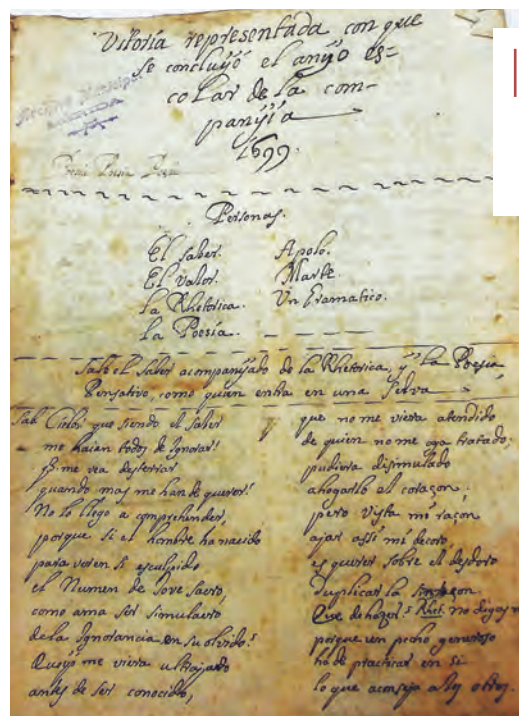 Vitoria representada con que
se concluÿò el anÿo es=
colar de la com-
panÿia
1699.
Archivo Municipal
Personas.
El saber.
El valor.
La Rhetorica.
La Poesia.
Apolo.
Marte.
Un Gramatico.
Sale el saber acompanÿado de la Rhetorica, ÿ la Poesia
Pensativo, como quien entra en una Selva
Sab. Cielos que siendo el saber
me haien todos de ignorar!
me vea desterrar
quando mas me han de querer!
No lo llego a comprehender,
porque si el hombre ha nacido
para ver en si esculpido
el Numen de Jove sacro,
como ama ser simulacro
de la ignorancia en su olvido?
Que yo me viera ultrajado
antes de ser conocido,
que no me viera atendido
de quien no me aya tratado;
pudiera disimulado
ahogarlo el coraçon;
pero vista mi raçon
ajar assi mi decoro,
es querer sobre el desdoro
duplicar la sinraçon.
Que de hazer? Rhet. no digas
porque un pecho generoso
ha de practicar en si
lo que aconseja a los otros.